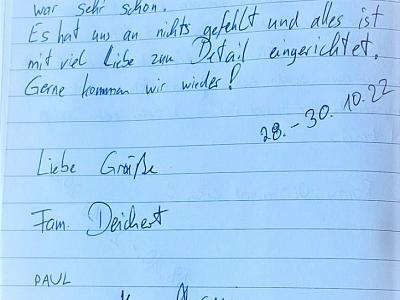 war sehr schön.
Es hat uns an nichts gefehlt und alles ist
mit viel Liebe zum Detail eingerichtet.
Gerne kommen wir wieder!
28. - 30. 10. 22
Liebe Grüße
Fam. Deichert
PAUL